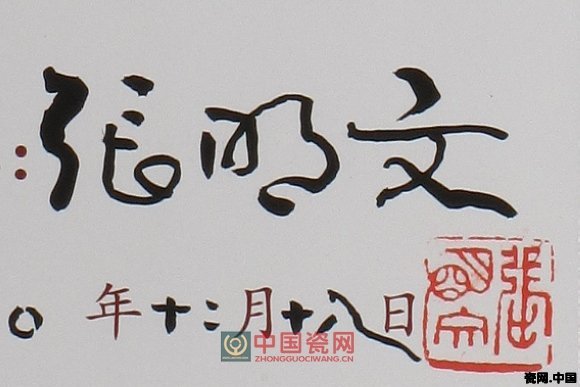 :張明文
〇年十二月十八日
中国瓷网
ZHONGGUOCIWANG.CN
張明文
瓷网.中国